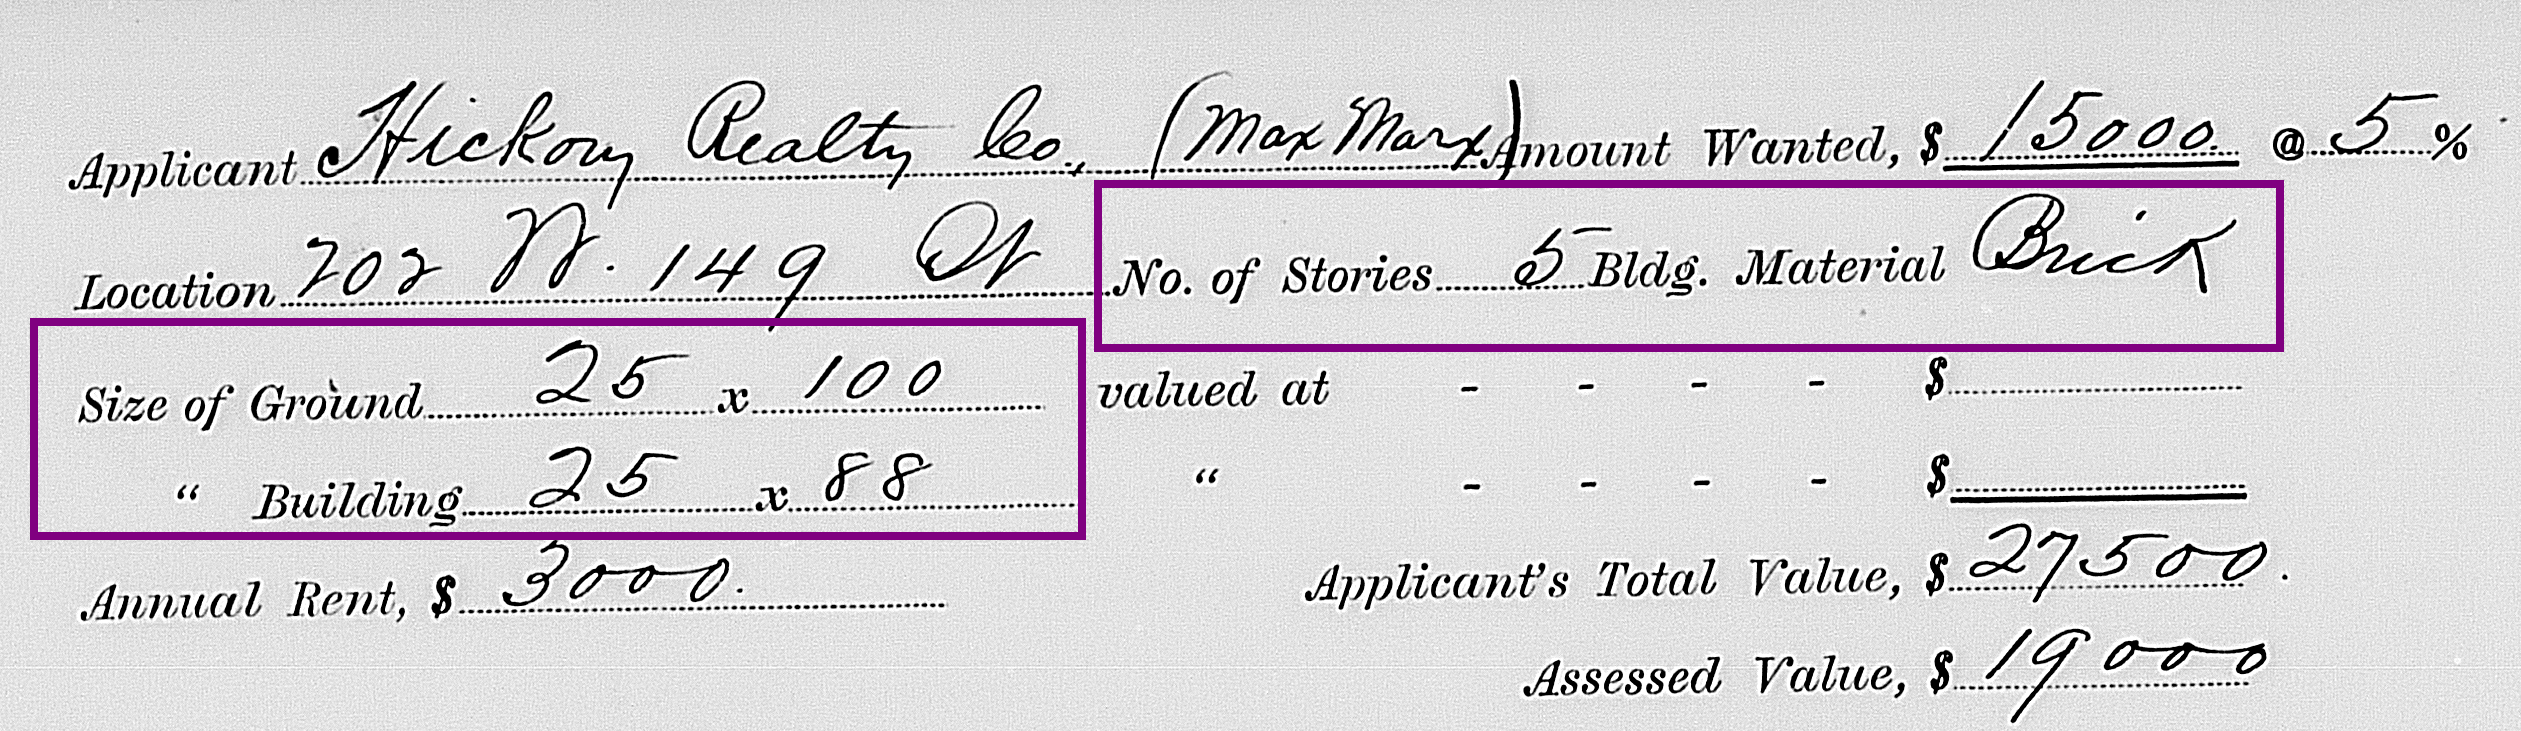 Applicant Hickory Realty Co., (Max Marx) Amount Wanted, $ 15000. @ 5 %
Location 202 W. 149 St No. of Stories 5 Bldg. Material Brick
Size of Ground 25 x 100 valued at - - - - $
“ Building 25 x 88 “ - - - - $
Annual Rent, $ 3000. Applicant's Total Value, $ 27500.
Assessed Value, $ 19000